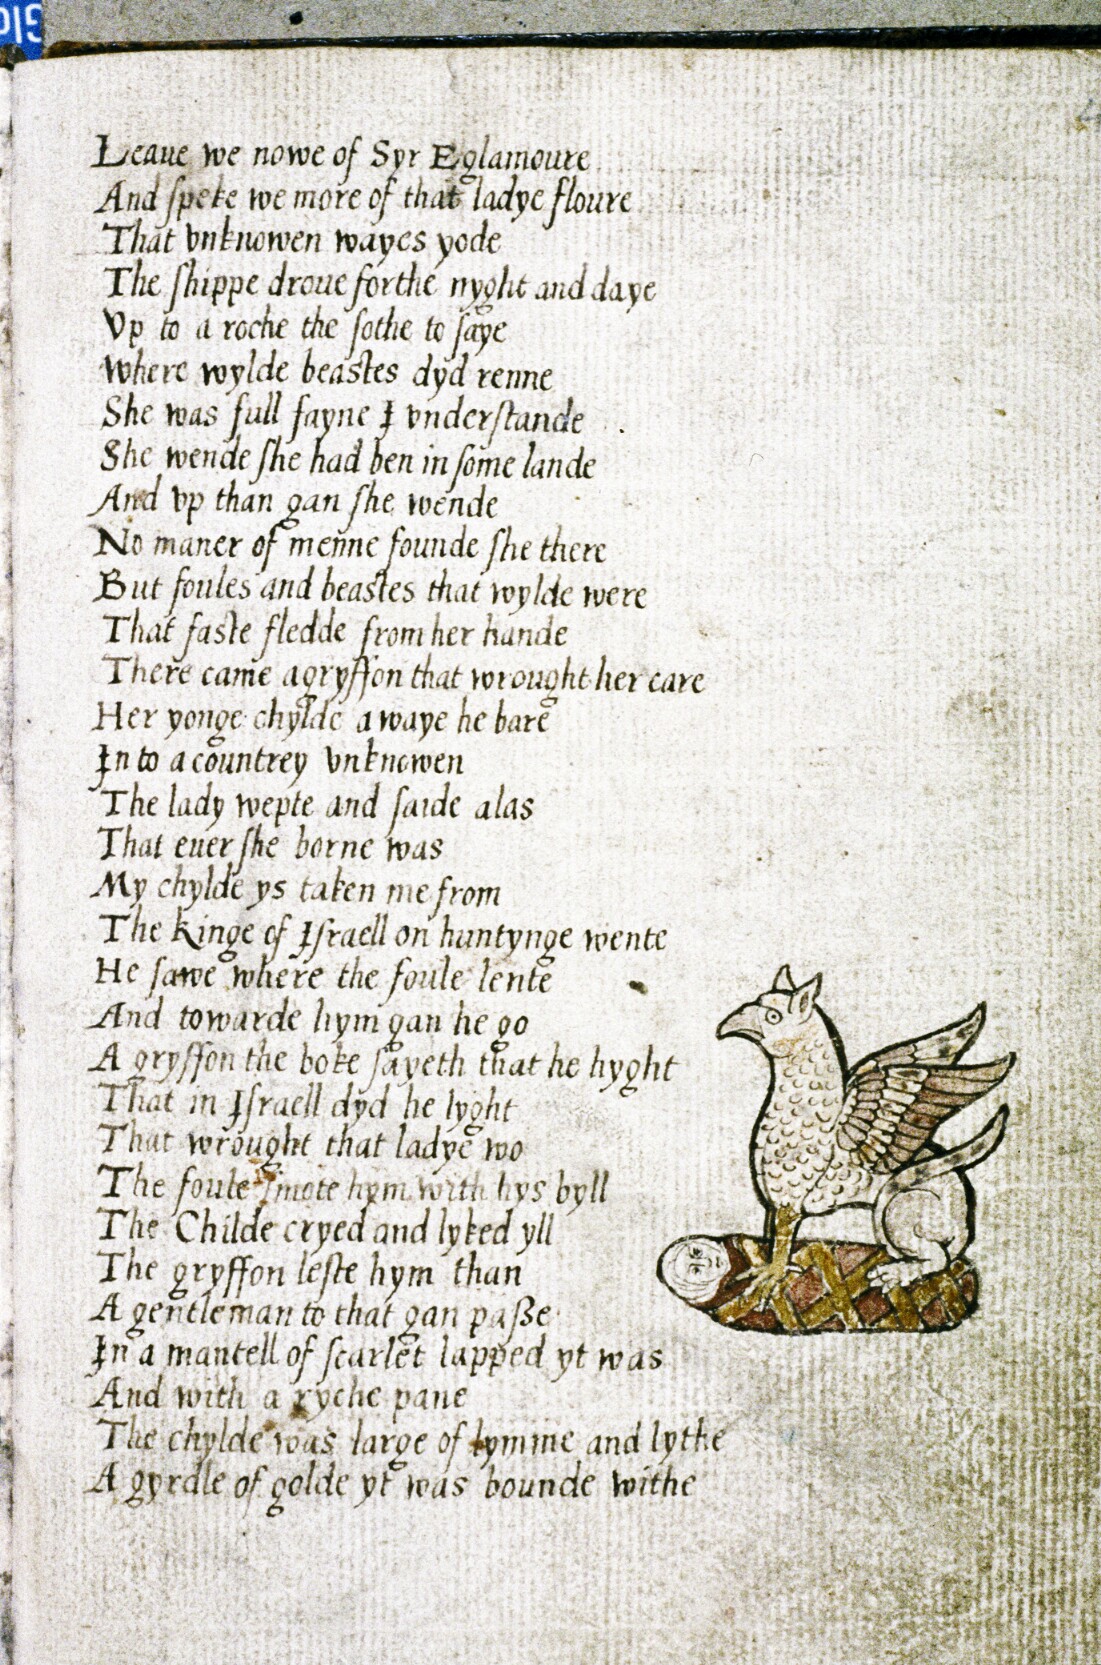 Leaue we nowe of Syr Eglamoure
And ſpeke we more of that ladye floure
That vnknowen wayes yode
The ſhippe droue forthe nyght and daye
Vp to a roche the ſothe to ſaye
Where wylde beaſtes dyd renne
She was full fayne I vnderſtande
She wende ſhe had ben in ſome lande
And vp than gan ſhe wende
No maner of menne founde ſhe there
But foules and beaſtes that wylde were
That faſte fledde from her hande
There came a gryffon that wrought her care
Her yonge chylde awaye he bare
In to a countrey vnknowen
The lady wepte and ſaide alas
That euer ſhe borne was
My chylde ys taken me from
The kinge of Iſraell on huntynge wente
He ſawe where the foule lente
And towarde hym gan he go
A gryffon the boke ſayeth that he hyght
That in Iſraell dyd he lyght
That wrought that ladye wo
The foule ſmote hym with hys byll
The Childe cryed and lyked yll
The gryffon leſte hym than
A gentleman to that gan paße
In a mantell of ſcarlet lapped yt was
And with a ryche pane
The chylde was large of lymme and lythe
A gyrdle of golde yt was bounde withe